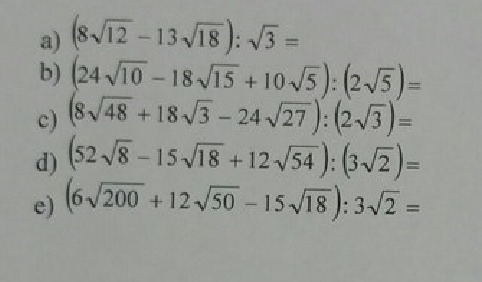 a) (8√12 – 13√18) : √3 =
b) (24√10 – 18√15 + 10√5) : (2√5) =
c) (8√48 + 18√3 – 24√27) : (2√3) =
d) (52√8 – 15√18 + 12√54) : (3√2) =
e) (6√200 + 12√50 – 15√18) : 3√2 =